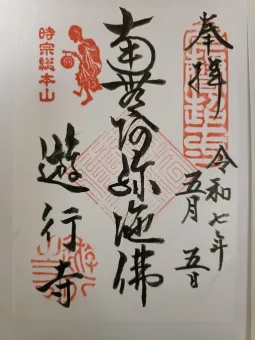 奉拝
令和七年
五月 五日
南無阿弥陀佛
時宗総本山
遊行寺